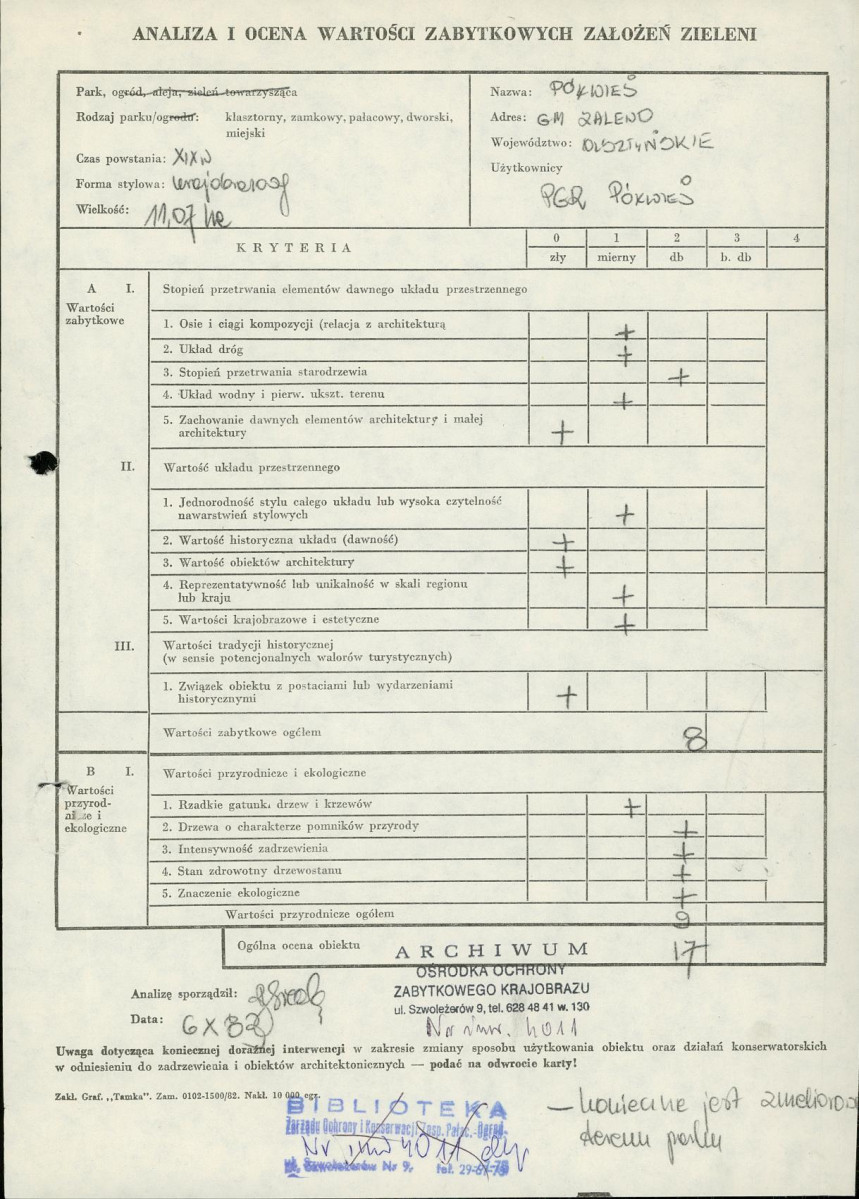 ANALIZA I OCENA WARTOŚCI ZABYTKOWYCH ZAŁOŻEŃ ZIELENI
Park, ogród, aleja, zieleń towarzysząca
Rodzaj parku/ogrodu: klasztorny, zamkowy, pałacowy, dworski,
miejski
Czas powstania: XIX w
Forma stylowa: krajobrazowy
Wielkość: 11,07 ha
Nazwa: PÓŁWIEŚ
Adres: GM ZALEWO
Województwo: OLSZTYŃSKIE
Użytkownicy
PGR PÓŁWIEŚ
KRYTERIA
0 1 2 3 4
zły mierny db b. db
A I. Stopień przetrwania elementów dawnego układu przestrzennego
Wartości
zabytkowe
1. Osie i ciągi kompozycji (relacja z architekturą +
2. Układ dróg +
3. Stopień przetrwania starodrzewia +
4. Układ wodny i pierw. ukszt. terenu +
5. Zachowanie dawnych elementów architektury i małej
architektury +
II. Wartość układu przestrzennego
1. Jednorodność stylu całego układu lub wysoka czytelność
nawarstwień stylowych +
2. Wartość historyczna układu (dawność) +
3. Wartość obiektów architektury +
4. Reprezentatywność lub unikalność w skali regionu
lub kraju +
5. Wartości krajobrazowe i estetyczne +
III. Wartości tradycji historycznej
(w sensie potencjonalnych walorów turystycznych)
1. Związek obiektu z postaciami lub wydarzeniami
historycznymi +
Wartości zabytkowe ogółem 8
B I. Wartości przyrodnicze i ekologiczne
Wartości
przyrod-
nicze i
ekologiczne
1. Rzadkie gatunki drzew i krzewów +
2. Drzewa o charakterze pomników przyrody +
3. Intensywność zadrzewienia +
4. Stan zdrowotny drzewostanu +
5. Znaczenie ekologiczne +
Wartości przyrodnicze ogółem 9
Ogólna ocena obiektu 17
ARCHIWUM
OŚRODKA OCHRONY
ZABYTKOWEGO KRAJOBRAZU
ul. Szwoleżerów 9, tel. 628 48 41 w. 130
Nr inw. 4011
Analizę sporządził:
Data: 6 X 83
Uwaga dotycząca koniecznej doraźnej interwencji w zakresie zmiany sposobu użytkowania obiektu oraz działań konserwatorskich
w odniesieniu do zadrzewienia i obiektów architektonicznych — podać na odwrocie karty!
Zakł. Graf. „Tamka". Zam. 0102-1500/82. Nakł. 10 000 egz.
BIBLIOTEKA
Zarządu Ochrony i Konserwacji Zesp. Pałac.-Ogrod.
Nr inw 4011
ul. Szwoleżerów Nr 9, tel. 29-61-75
— konieczne jest
terenu parku